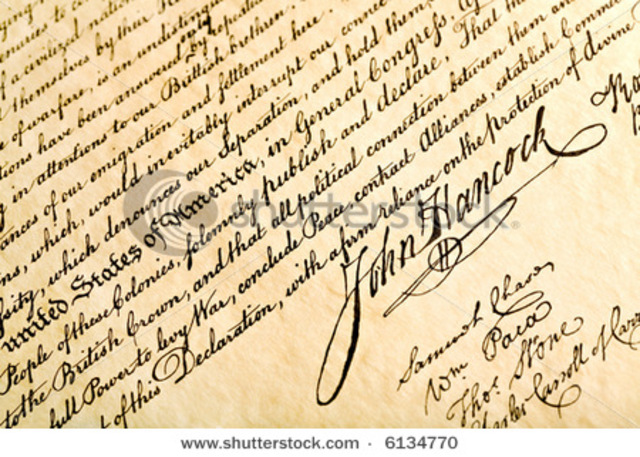 of a civilized nation
themselves by their
of warfare, is an undistinguished
have been answered by repeated
in attentions to our Brittish brethren.
ances of our emigration and settlement here.
which, would inevitably interrupt our
sity, which denounces our Separation, and hold them
united States of America, in General Congress,
People of these Colonies, solemnly publish and declare, That
to the British Crown, and that all political connection between them and
full Power to levy War, conclude Peace, contract Alliances, establish Commerce
of this Declaration, with a firm reliance on the Protection of divine
John Hancock
Samuel Chase
Wm Paca
Thos. Stone
Carroll of Carr
shutterstock
www.shutterstock.com · 6134770